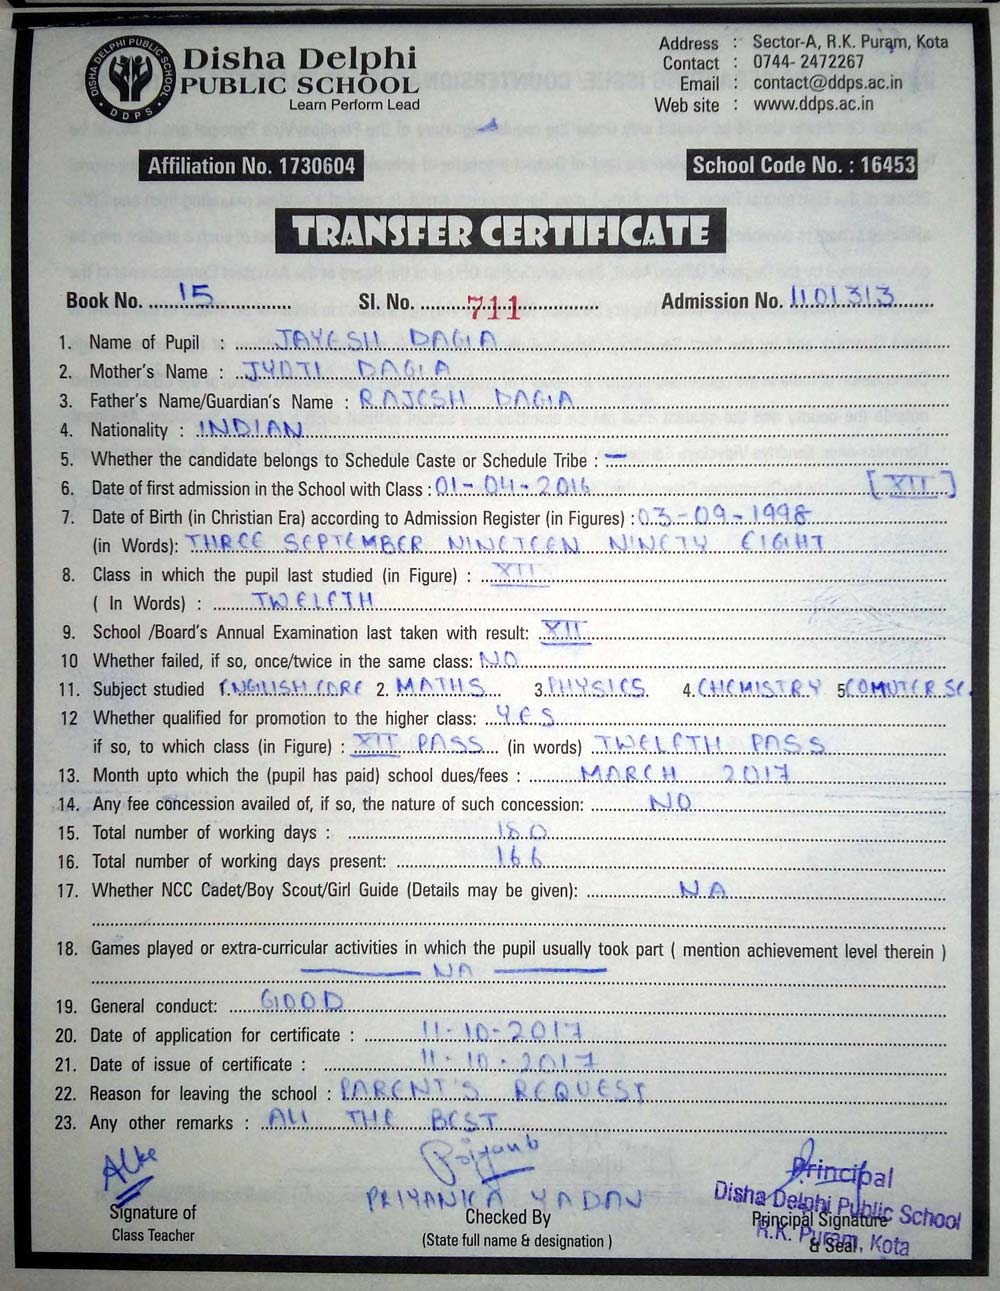 DISHA DELPHI PUBLIC SCHOOL
DDPS
Disha Delphi
PUBLIC SCHOOL
Learn Perform Lead
Address : Sector-A, R.K. Puram, Kota
Contact : 0744- 2472267
Email : contact@ddps.ac.in
Web site : www.ddps.ac.in
Affiliation No. 1730604
School Code No. : 16453
TRANSFER CERTIFICATE
Book No. 15 Sl. No. 711 Admission No. 1101313
1. Name of Pupil : JAYESH DAGIA
2. Mother's Name : JYOTI DAGIA
3. Father's Name/Guardian's Name : RAJESH DAGIA
4. Nationality : INDIAN
5. Whether the candidate belongs to Schedule Caste or Schedule Tribe : -
6. Date of first admission in the School with Class : 01-04-2016 [XII]
7. Date of Birth (in Christian Era) according to Admission Register (in Figures) : 03-09-1998
(in Words): THREE SEPTEMBER NINETEEN NINETY EIGHT
8. Class in which the pupil last studied (in Figure) : XII
( In Words) : TWELFTH
9. School /Board's Annual Examination last taken with result: XII
10 Whether failed, if so, once/twice in the same class: NO
11. Subject studied 1. ENGLISH CORE 2. MATHS 3. PHYSICS 4. CHEMISTRY 5 COMUTER SC.
12 Whether qualified for promotion to the higher class: YES
if so, to which class (in Figure) : XII PASS (in words) TWELFTH PASS
13. Month upto which the (pupil has paid) school dues/fees : MARCH 2017
14. Any fee concession availed of, if so, the nature of such concession: NO
15. Total number of working days : 180
16. Total number of working days present: 166
17. Whether NCC Cadet/Boy Scout/Girl Guide (Details may be given): NA
18. Games played or extra-curricular activities in which the pupil usually took part ( mention achievement level therein )
NA
19. General conduct: GOOD
20. Date of application for certificate : 11-10-2017
21. Date of issue of certificate : 11-10-2017
22. Reason for leaving the school : PARENT'S REQUEST
23. Any other remarks : ALL THE BEST
PRIYANKA YADAV
Principal
Disha Delphi Public School
R.K. Puram, Kota
Signature of
Class Teacher
Checked By
(State full name & designation )
Principal Signature
& Seal